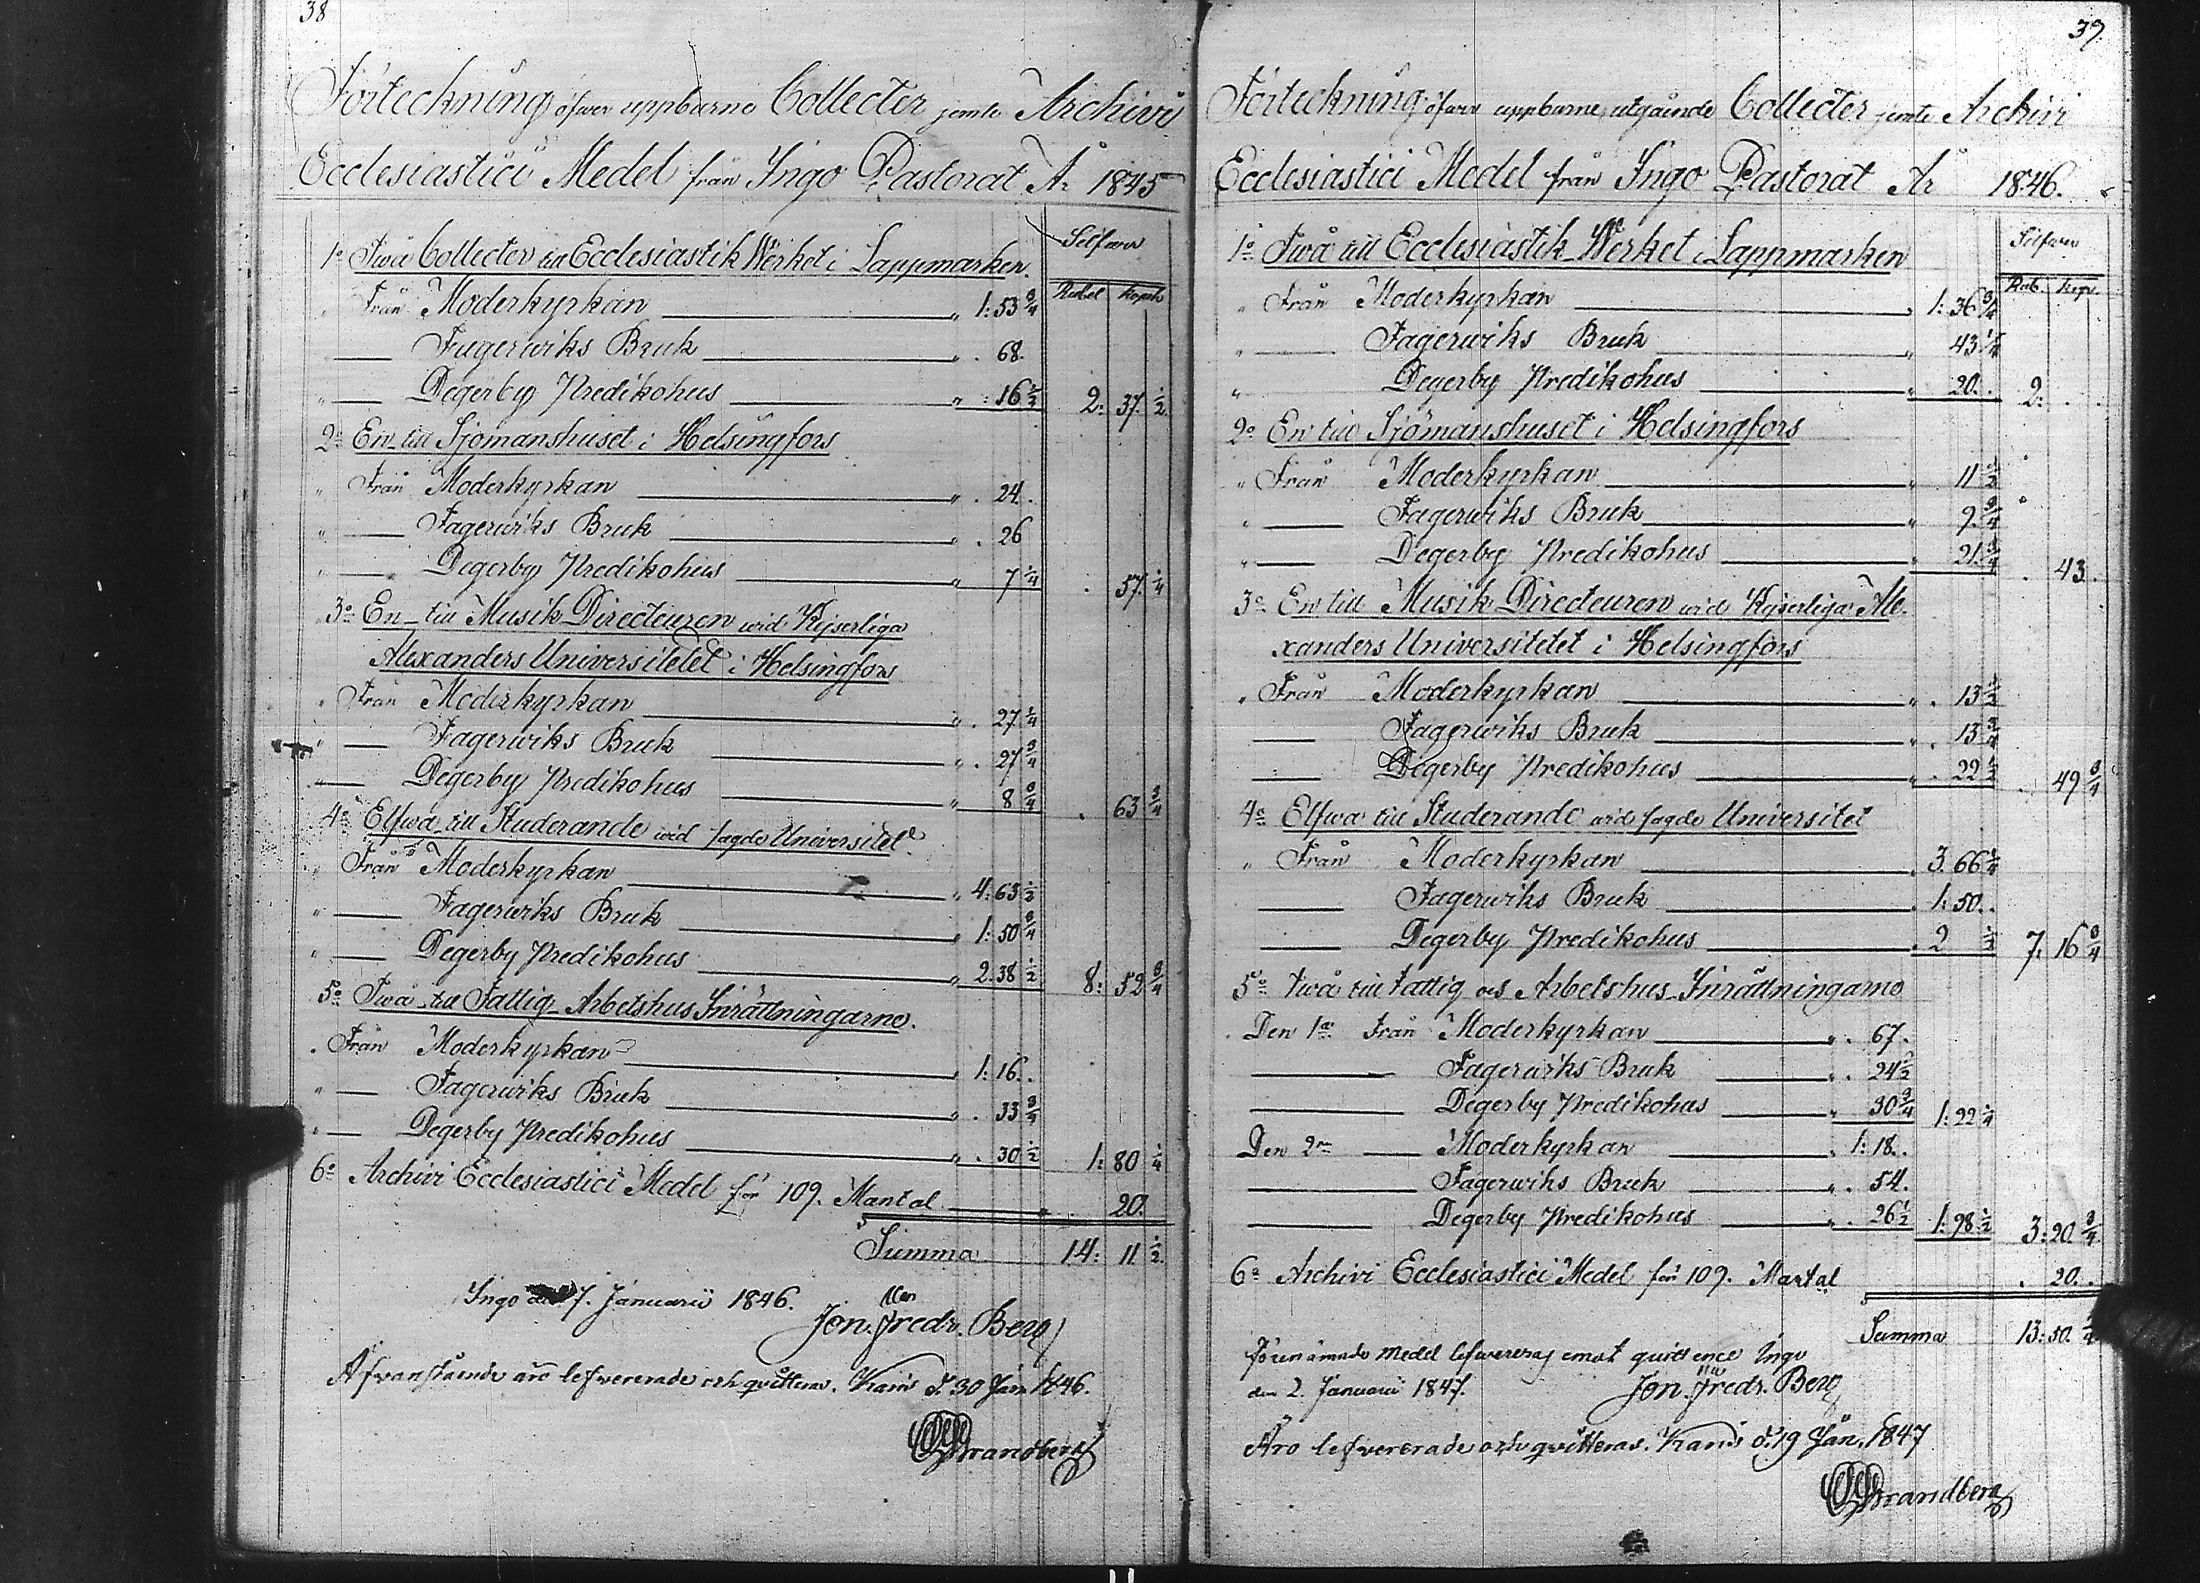 38
Förteckning öfver uppburne Collecter jemte Archivi
Ecclesiastici Medel från Ingo Pastorat År 1845
Silfver
Rubel Kopek
1o Twå Collecter till Ecclesiastik Werket i Lappmarken.
" Från Moderkyrkan " 1: 53 3/4
" Fagerwiks Bruk " . 68.
" Degerby Predikohus " : 16 1/2 2: 37. 1/2.
2o En till Sjömanshuset i Helsingfors
" Från Moderkyrkan " . 24.
" Fagerwiks Bruk " . 26
" Degerby Predikohus " 7 1/4 . 57. 1/4
3o En till Musik Directeuren wid Kejserliga
Alexanders Universitetet i Helsingfors
" Från Moderkyrkan " . 27 1/4
" Fagerwiks Bruk " . 27 3/4
" Degerby Predikohus " 8 3/4 . 63 3/4
4o Elfwa till Studerande wid sagde Universitet
" Från Moderkyrkan " 4: 63 1/2
" Fagerwiks Bruk " 1: 50 3/4
" Degerby Predikohus " 2. 38 1/2 8: 52 3/4
5o Twå till Fattig Arbetshus Inrättningarne.
" Från Moderkyrkan " 1: 16..
" Fagerwiks Bruk " . 33 3/4
" Degerby Predikohus " . 30 1/2 1: 80 1/4
6o Archivi Ecclesiastici Medel för 109. Mantal " . 20.
Summa 14: 11 1/2.
Ingo 7. Januarii 1846.
Jon. Fredr. Berg
Afvanstående äro lefvererade och qvitteras. Karis d. 30 Jan. 1846.
Strandberg
39.
Förteckning öfver uppburne, utgående Collecter jemte Archivi
Ecclesiastici Medel från Ingo Pastorat År 1846.
Silfver
Rub. Kop.
1o Twå till Ecclesiastik Werket i Lappmarken
" Från Moderkyrkan " 1: 36 3/4
" Fagerwiks Bruk " 43 1/4
" Degerby Predikohus " 20. . 2: . .
2o En till Sjömanshuset i Helsingfors
" Från Moderkyrkan " 11 1/2
" Fagerwiks Bruk " 9. 3/4
" Degerby Predikohus " 21. 3/4 . 43 .
3o En till Musik Directeuren wid Kejserliga Ale-
xanders Universitetet i Helsingfors
" Från Moderkyrkan " . 13 1/2
Fagerwiks Bruk " . 13 3/4
Degerby Predikohus " . 22 1/2 . 49 3/4
4o Elfwa till Studerande wid sagde Universitet
" Från Moderkyrkan " 3. 66 1/4
Fagerwiks Bruk " 1: 50. .
Degerby Predikohus " 2 1/2 7: 16 3/4
5o Twå till Fattig och Arbetshus Inrättningarne
Den 1a Från Moderkyrkan " . 67 .
Fagerwiks Bruk " . 24 1/2
Degerby Predikohus " 30 3/4 1: 22 1/4
Den 2a Moderkyrkan " 1: 18. .
Fagerwiks Bruk " . 54.
Degerby Predikohus " . 26 1/2 1: 98 1/2 3: 20. 3/4
6o Archivi Ecclesiastici Medel för 109. Mantal . 20. .
Summa 13: 30. 1/4
Förenämnde medel lefwereras emot quittence Ingo
den 2. Januarii 1847. Jon. Fredr. Berg
Äro lefvererade och qvitteras. Karis d. 19 Jan. 1847
Strandberg